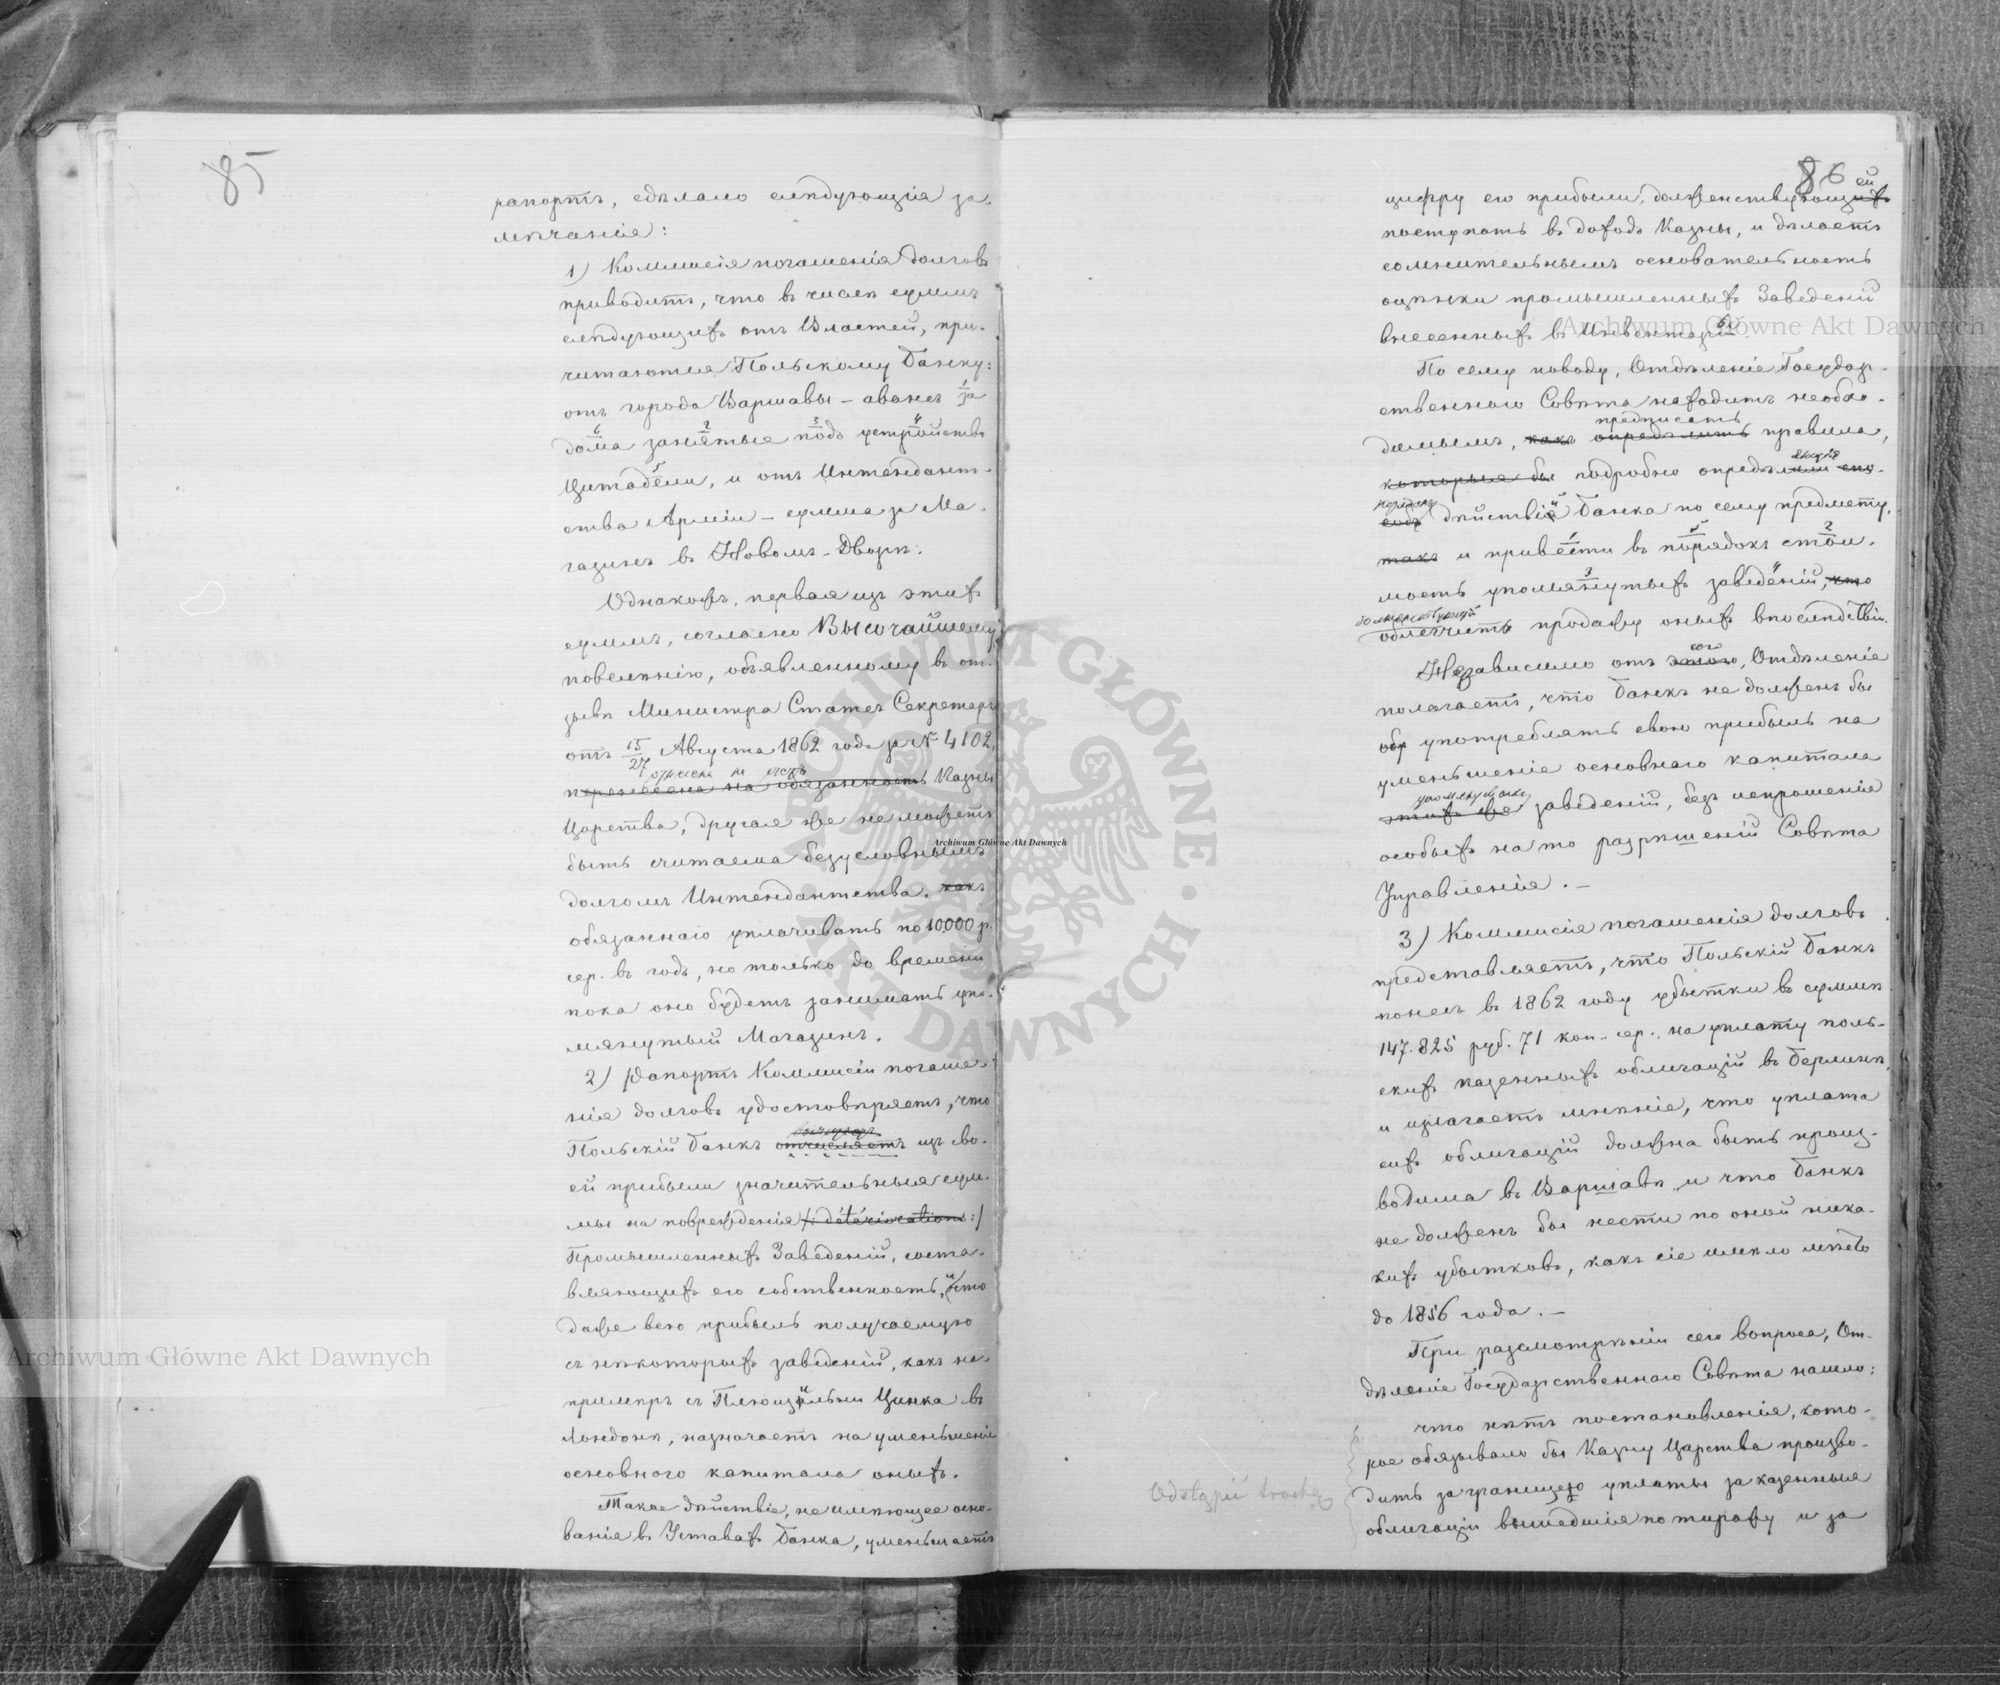 85
рапортъ, сдѣлало слѣдующія за-
мѣчанія:
1) Коммисія погашенія долговъ
приводитъ, что въ числѣ суммъ
слѣдующихъ отъ Властей, при-
читаются Польскому Банку:
отъ города Варшавы – авансъ за
дома занятые подъ устройство
Цитадели, и отъ Интендант-
ства Арміи – сумма за Ма-
газинъ въ Новомъ-Дворѣ.
Однакожъ, первая изъ этихъ
суммъ, согласно Высочайшему
повелѣнію, объявленному въ от-
зывѣ Министра Статсъ Секретаря
отъ 15/27 Августа 1862 года за № 4102,
отнесена на счетъ
перенесена на обязанность Казны
Царства, другая же не можетъ
быть считаема безусловнымъ
долгомъ Интендантства, какъ
обязаннаго уплачивать по 10.000 р.
сер. въ годъ, но только до времени
пока оно будетъ занимать упо-
мянутый Магазинъ.
2) Рапортъ Коммисіи погаше-
нія долговъ удостовѣряетъ, что
Польскій Банкъ отчисляетъ изъ сво-
ей прибыли значительныя сум-
мы на поврежденія /: détériorations :/
Промышленныхъ Заведеній, соста-
вляющихъ его собственность, и что
даже всю прибыль получаемую
съ нѣкоторыхъ заведеній, какъ на-
примѣръ съ Плющильни Цинка въ
Лондонѣ, назначаетъ на уменьшеніе
основного капитала оныхъ.
Такое дѣйствіе, не имѣющее осно-
ванія въ Уставахъ Банка, уменьшаетъ
86
цифру его прибыли, долженствующей
поступать въ доходъ Казны, и дѣлаетъ
сомнительнымъ основательность
оцѣнки промышленныхъ Заведеній
внесенныхъ въ Инвентарь
По сему поводу, Отдѣленіе Государ-
ственнаго Совѣта находитъ необхо-
предписать
димымъ, какъ опредѣлить правила,
которыя бы подробно опредѣлили спо-
порядокъ
собъ дѣйствій Банка по сему предмету,
такъ и привести въ порядокъ стои-
мость упомянутыхъ заведеній, что
долженствующій
облегчить продажу оныхъ впослѣдствіи.
сего
Независимо отъ этого, Отдѣленіе
полагаетъ, что Банкъ не долженъ бы
обр употреблять свою прибыль на
уменьшеніе основнаго капитала
упомянутыхъ
этихъ же заведеній, безъ испрошенія
особыхъ на то разрѣшеній Совѣта
Управленія. –
3) Коммисія погашенія долговъ
представляетъ, что Польскій Банкъ
понесъ въ 1862 году убытки въ суммѣ
147.825 руб. 71 коп. сер., на уплату поль-
скихъ казенныхъ облигацій въ Берлинѣ,
и излагаетъ мнѣніе, что уплата
сихъ облигацій должна быть произ-
водима въ Варшавѣ, и что Банкъ
не долженъ бы нести по оной ника-
кихъ убытковъ, какъ сіе имѣло мѣсто
до 1856 года. –
При разсмотрѣніи сего вопроса, От-
дѣленіе Государственнаго Совѣта нашло:
что нѣтъ постановленія, кото-
рое обязывало бы Казну Царства произво-
дить за границею уплаты за казенные
Odstąpić trochę
облигаціи вышедшія по тиражу и за
Archiwum Główne Akt Dawnych
Archiwum Główne Akt Dawnych
Archiwum Główne Akt Dawnych
ARCHIWUM GŁÓWNE AKT DAWNYCH